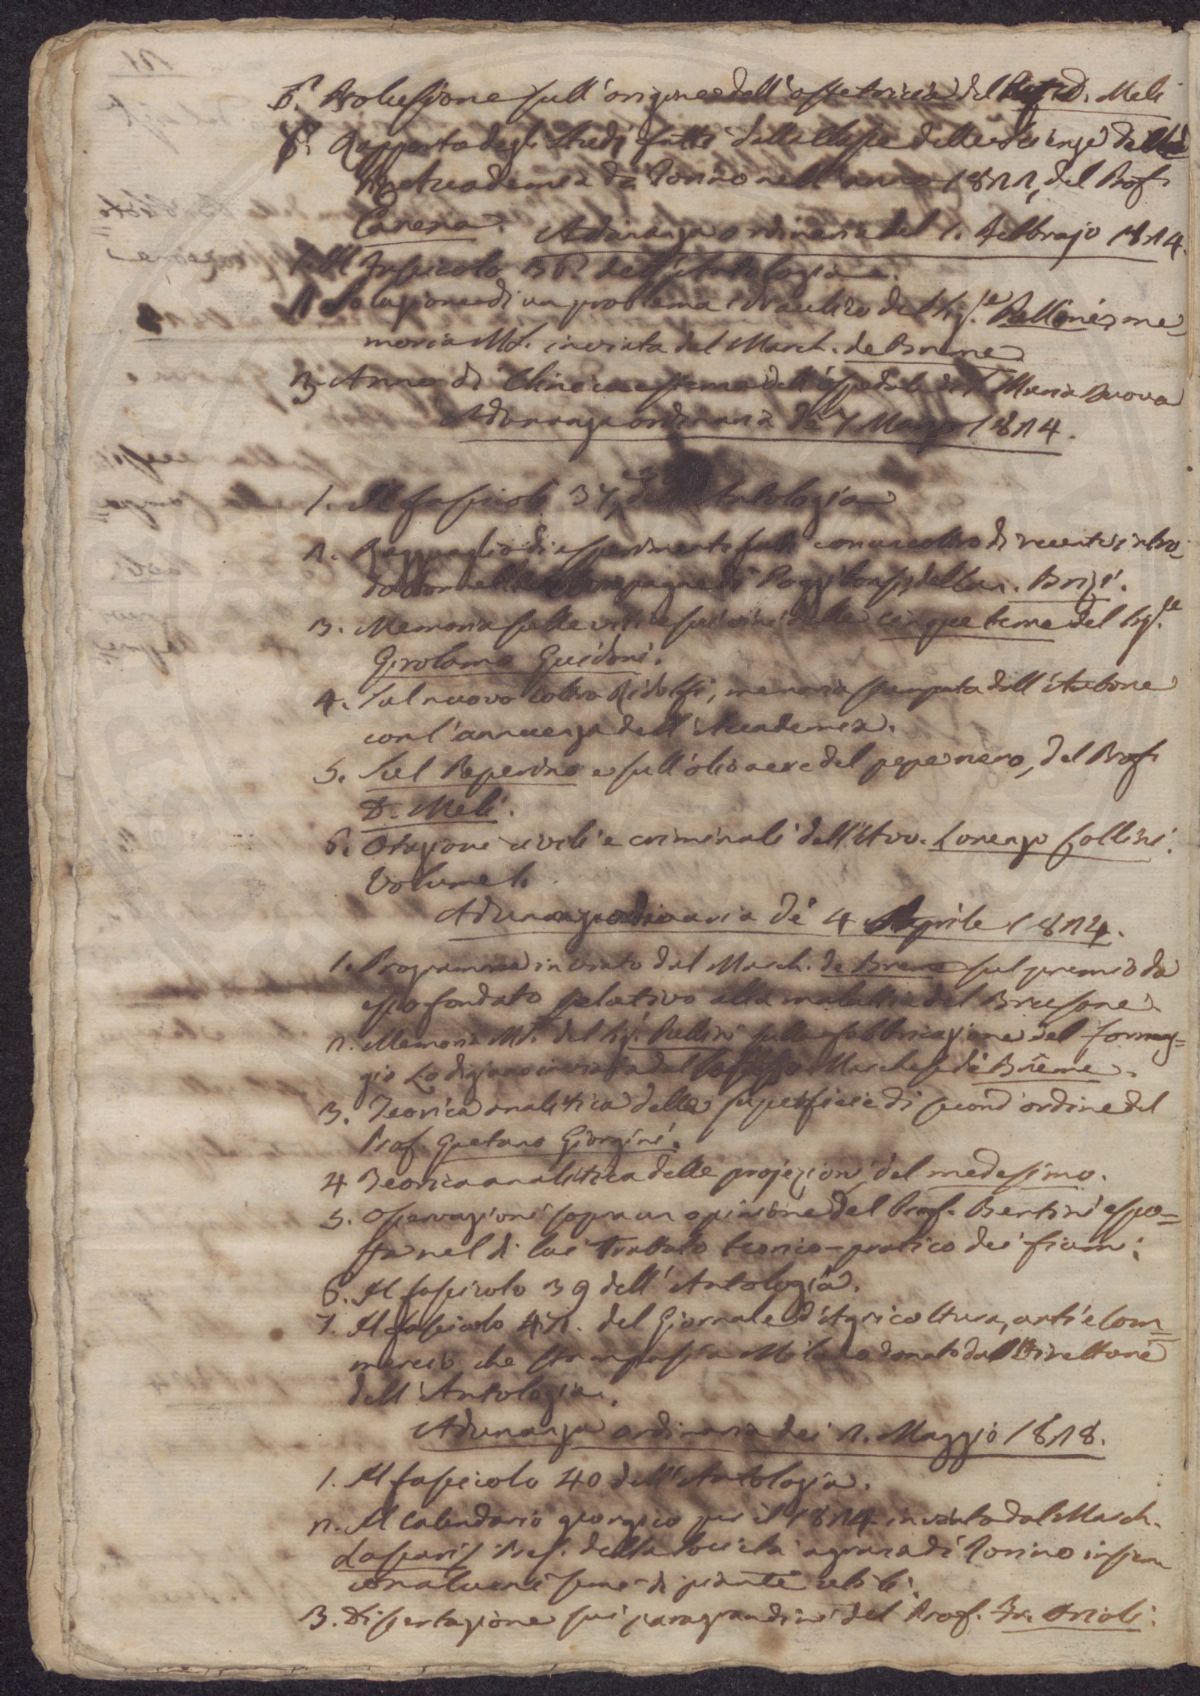 6. Prolusione sull'origine dell'ostetricia del Prof. D. Meli
7. Rapporto degli studi fatti dalla Classe delle Scienze della
R. Accademia di Torino nell'anno 1822, del Prof.
Carena.
Adunanza ordinaria del 1. Febbrajo 1824.
1. Il Fascicolo 36. dell'Antologia.
2. Soluzione di un problema idraulico del Sig.re Bellini, me
moria MS. inviata dal March. de Breme
3. Anno di Clinica esterna dell'Ospedale di S. Maria Nuova
Adunanza ordinaria de' 7 Marzo 1824.
1. Il fascicolo 37, dell'Antologia
2. Ragguaglio di esperimenti fatti con un coltro di recente intro
dotto nelle Campagne di Poggibonsi, del Can. Brizi.
3. Memoria sulle viti e sui vini delle cinque terre del Sig.re
Girolamo Guidoni.
4. Sul nuovo coltro Ridolfi, memoria stampata dall'Autore
con l'annuenza dell'Accademia.
5. Sul Peperino e sull'olio acre del pepe nero, del Prof.
D. Meli.
6. Orazioni civili e criminali dell'Avv. Lorenzo Collini.
Volume 1.
Adunanza ordinaria de' 4 Aprile 1824.
1. Programma inviato dal March. de Breme sul premio da
esso fondato relativo alla malattia del Brusone.
2. Memoria MS. del Sig. Bellini sulla fabbricazione del formag=
gio Lodigiano inviata dal Marchese de Brême.
3. Teorica analitica delle superficie di second'ordine del
Prof. Gaetano Giorgini.
4 Teorica analitica delle projezioni, del medesimo.
5. Osservazioni sopra un opinione del Prof. Bertini espo=
sta nel di lui Trattato teorico-pratico dei fiumi.
6. Il fascicolo 39 dell'Antologia.
7. Il fascicolo 42. del Giornale d'Agricoltura, arti e Com=
mercio che stampasi a Milano donato dal Direttore
dell'Antologia.
Adunanza ordinaria dei 2. Maggio 1828.
1. Il fascicolo 40 dell'Antologia.
2. Il Calendario georgico per il 1824 inviato dal March.
Lascaris Pres. della Società agraria di Torino insiem
con alcuni semi di piante utili.
3. Dissertazione sui paragrandini del Prof. Fr. Orioli.